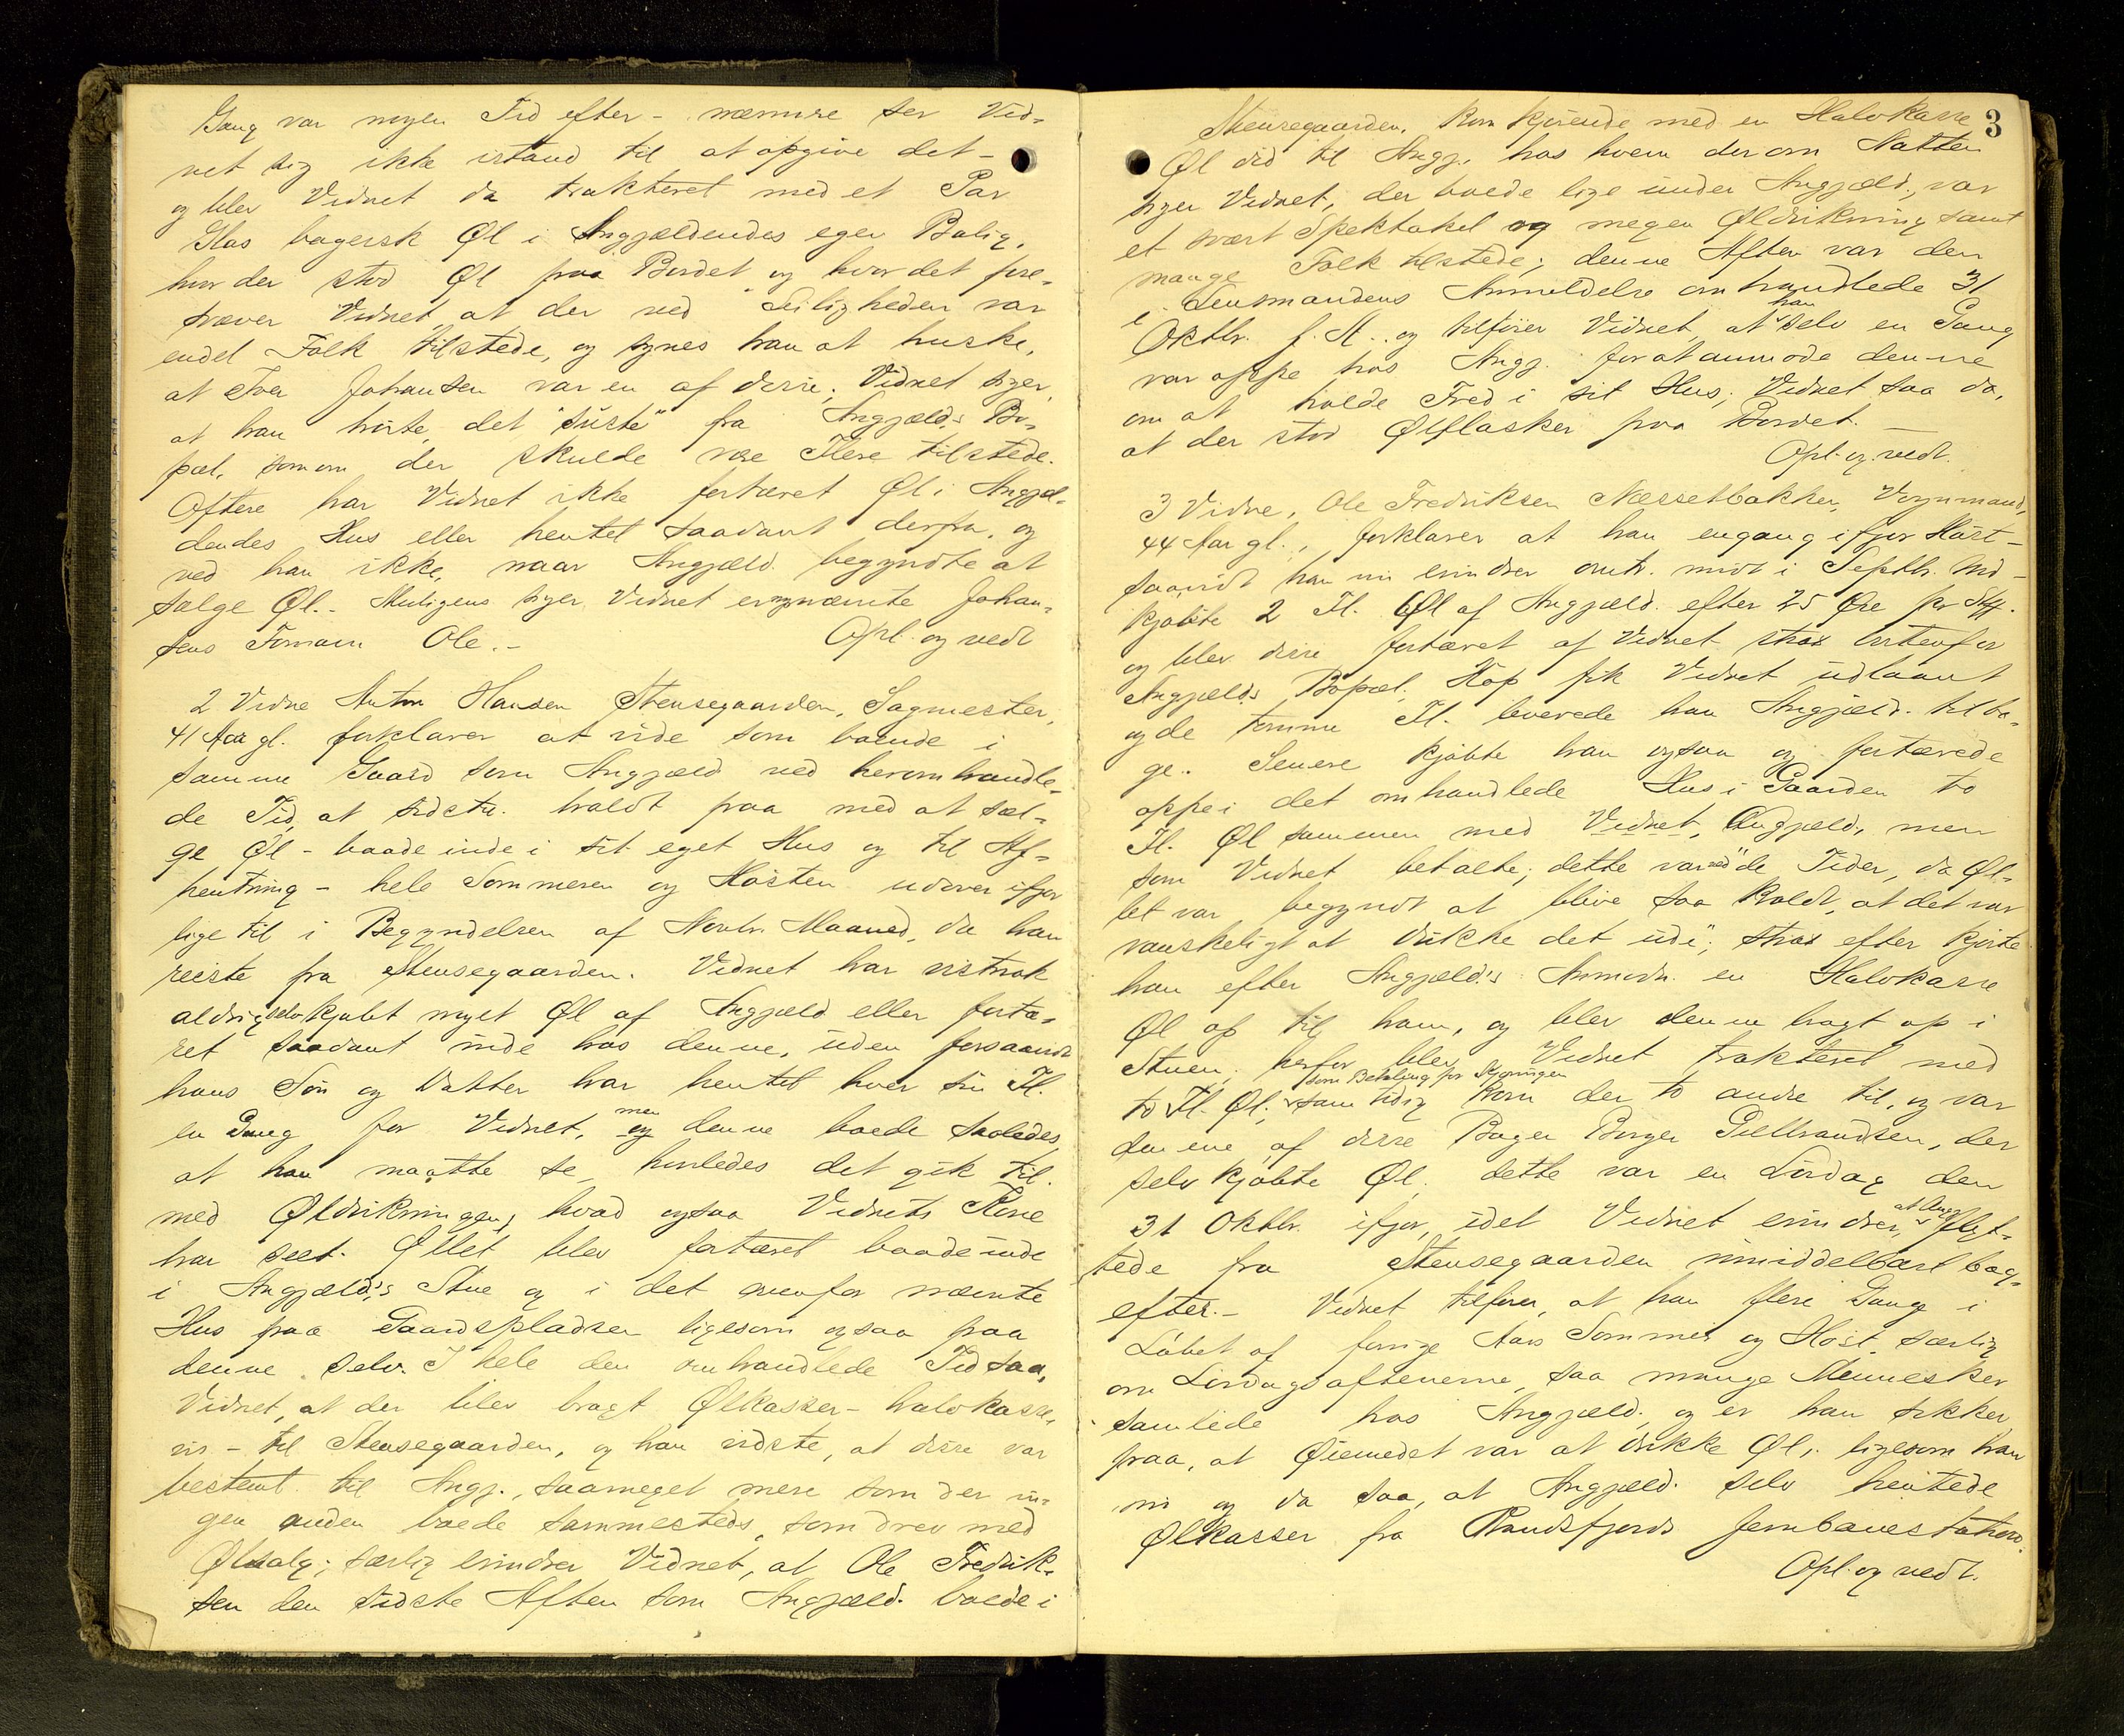 Gang var nogen Tid efter - nærmere ser Vid-
net sig ikke istand til at opgive det -
og blev Vidnet da trakteret med et Par
Glas bayersk Øl i Angjældendes egen Bolig,
hvor der stod Øl paa Bordet og hvor det fore-
svæver Vidnet, at der ved Leiligheden var
endel Folk tilstede, og synes han at huske,
at Iver Johansen var en af disse; Vidnet siger,
at han hørte, det "suste" fra Angjæld.s Bo-
pæl, som om der skulde være Flere tilstede.
Oftere har Vidnet ikke fortæret Øl i Angjæl-
dendes Hus eller hentet saadant derfra, og
ved han ikke, naar Angjæld. begyndte at
sælge Øl. - Muligens siger Vidnet er nævnte Johan-
sens Fornavn Ole. -
Opl. og vedt
2 Vidne Anton Hansen Stensegaarden, Sagmester,
41 Aar gl. forklarer at vide som boende i
samme Gaard som Angjæld ved heromhandle-
de Tid, at sidstn. holdt paa med at sæl-
ge Øl - baade inde i sit eget Hus og til Af-
hentning - hele Sommeren og Høsten udover ifjor
lige til i Begyndelsen af Novbr. Maaned, da han
reiste fra Stensegaarden. Vidnet har vistnok
aldrig selv kjøbt noget Øl af Angjæld eller fortæ-
ret saadant inde hos denne, uden forsaavidt
hans Søn og Datter har hentet hver sin Fl.
en Gang for Vidnet, men denne boede saaledes
at han maatte se, hvorledes det gik til
med Øldrikningen, hvad ogsaa Vidnets Kone
har seet. Øllet blev fortæret baade inde
i Angjæld.'s Stue og i det ovenfor nævnte
Hus paa Gaardspladsen ligesom ogsaa paa
denne selv. I hele den omhandlede Tid saa,
Vidnet, at der blev bragt Ølkasser - halvkasse-
vis - til Stensegaarden, og han vidste, at disse var
bestemt til Angj., saameget mere som der in-
gen anden boede sammesteds, som drev med
Ølsalg; særlig erindrer Vidnet, at Ole Fredrik-
sen den sidste Aften som Angjæld. boede i
3
Stensegaarden, kom kjørende med en Halvkasse
Øl did til Angj. hos hvem der om Natten
siger Vidnet, der boede lige under Angjæld., var
et svært Spektakel og megen Øldrikning samt
mange Folk tilstede; denne Aften var den
i Lensmandens Anmeldelse omhandlede 31
Oktbr. f. A. og tilføier Vidnet, at han selv en Gang
var oppe hos Angj. for at anmode denne
om at holde Fred i sit Hus; Vidnet saa da,
at der stod Ølflasker paa Bordet. -
Opl. og vedt.
3 Vidne, Ole Fredriksen Næssetbakken, Vognmand,
44 Aar gl., forklarer at han engang ifjor Høst -
saavidt han nu erindrer omtr. midt i Septbr. Md -
kjøbte 2 Fl. Øl af Angjæld. efter 25 Øre pr Stk.
og blev disse fortæret af Vidnet strax bortenfor
Angjæld.s Bopæl. Kop fik Vidnet udlaant
og de tomme Fl. leverede han Angjæld. tilba-
ge. Senere kjøbte han ogsaa og fortærede
oppe i det omhandlede Hus i Gaarden to
Fl. Øl sammen med Vidnet, Angjæld, men
som Vidnet betalte; dette var "ved de Tider, da Øl-
let var begyndt at blive saa koldt, at det var
vanskeligt at drikke det ude"; strax efter kjørte
han efter Angjæld.'s Anmodn. en Halvkasse
Øl op til ham, og blev denne bragt op i
Stuen; herfor blev Vidnet trakteret med
to Fl. Øl, som Betaling for Kjøringen samtidig kom der to andre til, og var
den ene af disse Bager Birger Gulbrandsen, der
selv kjøbte Øl; dette var en Lørdag den
31 Oktbr. ifjor, idet Vidnet erindrer, at Angj flyt-
tede fra Stensegaarden umiddelbart bag-
efter. - Vidnet tilføier, at han flere Gange i
Løbet af forrige Aars Sommer og Høst, særlig
om Lørdagsaftenerne, saa mange Mennesker
samlede hos Angjæld. og er han sikker
paa, at Øiemedet var at drikke Øl, ligesom han
nu og da saa, at Angjæld. selv hentede
Ølkasser fra Randsfjords Jernbanestation.
Opl. og vedt.